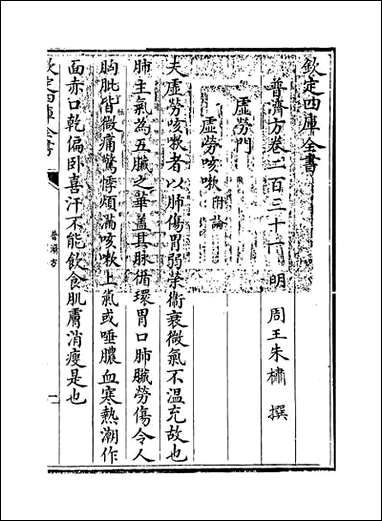 欽定四庫全書
普濟方卷二百三十一 明 周王朱橚 撰
虛勞門
虛勞咳嗽 附論
夫虛勞咳嗽者以肺傷胃弱榮衛衰微氣不温充故也
肺主氣為五臟之華蓋其脉循環胃口肺臟勞傷令人
胸微痛驚悸煩滿咳嗽上氣或唾膿血寒熱潮作
面赤口乾偏卧喜汗不能飲食肌膚消瘦是也
欽定四庫全書
普濟方
一